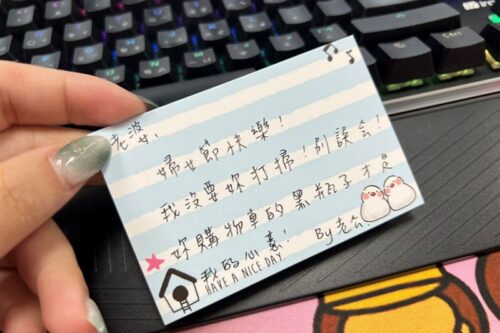 老婆,
婦女節快樂!
我沒要妳打掃!別誤會!
妳購物車的黑瓶子才是
我的心意!
By老公.
HAVE A NICE DAY